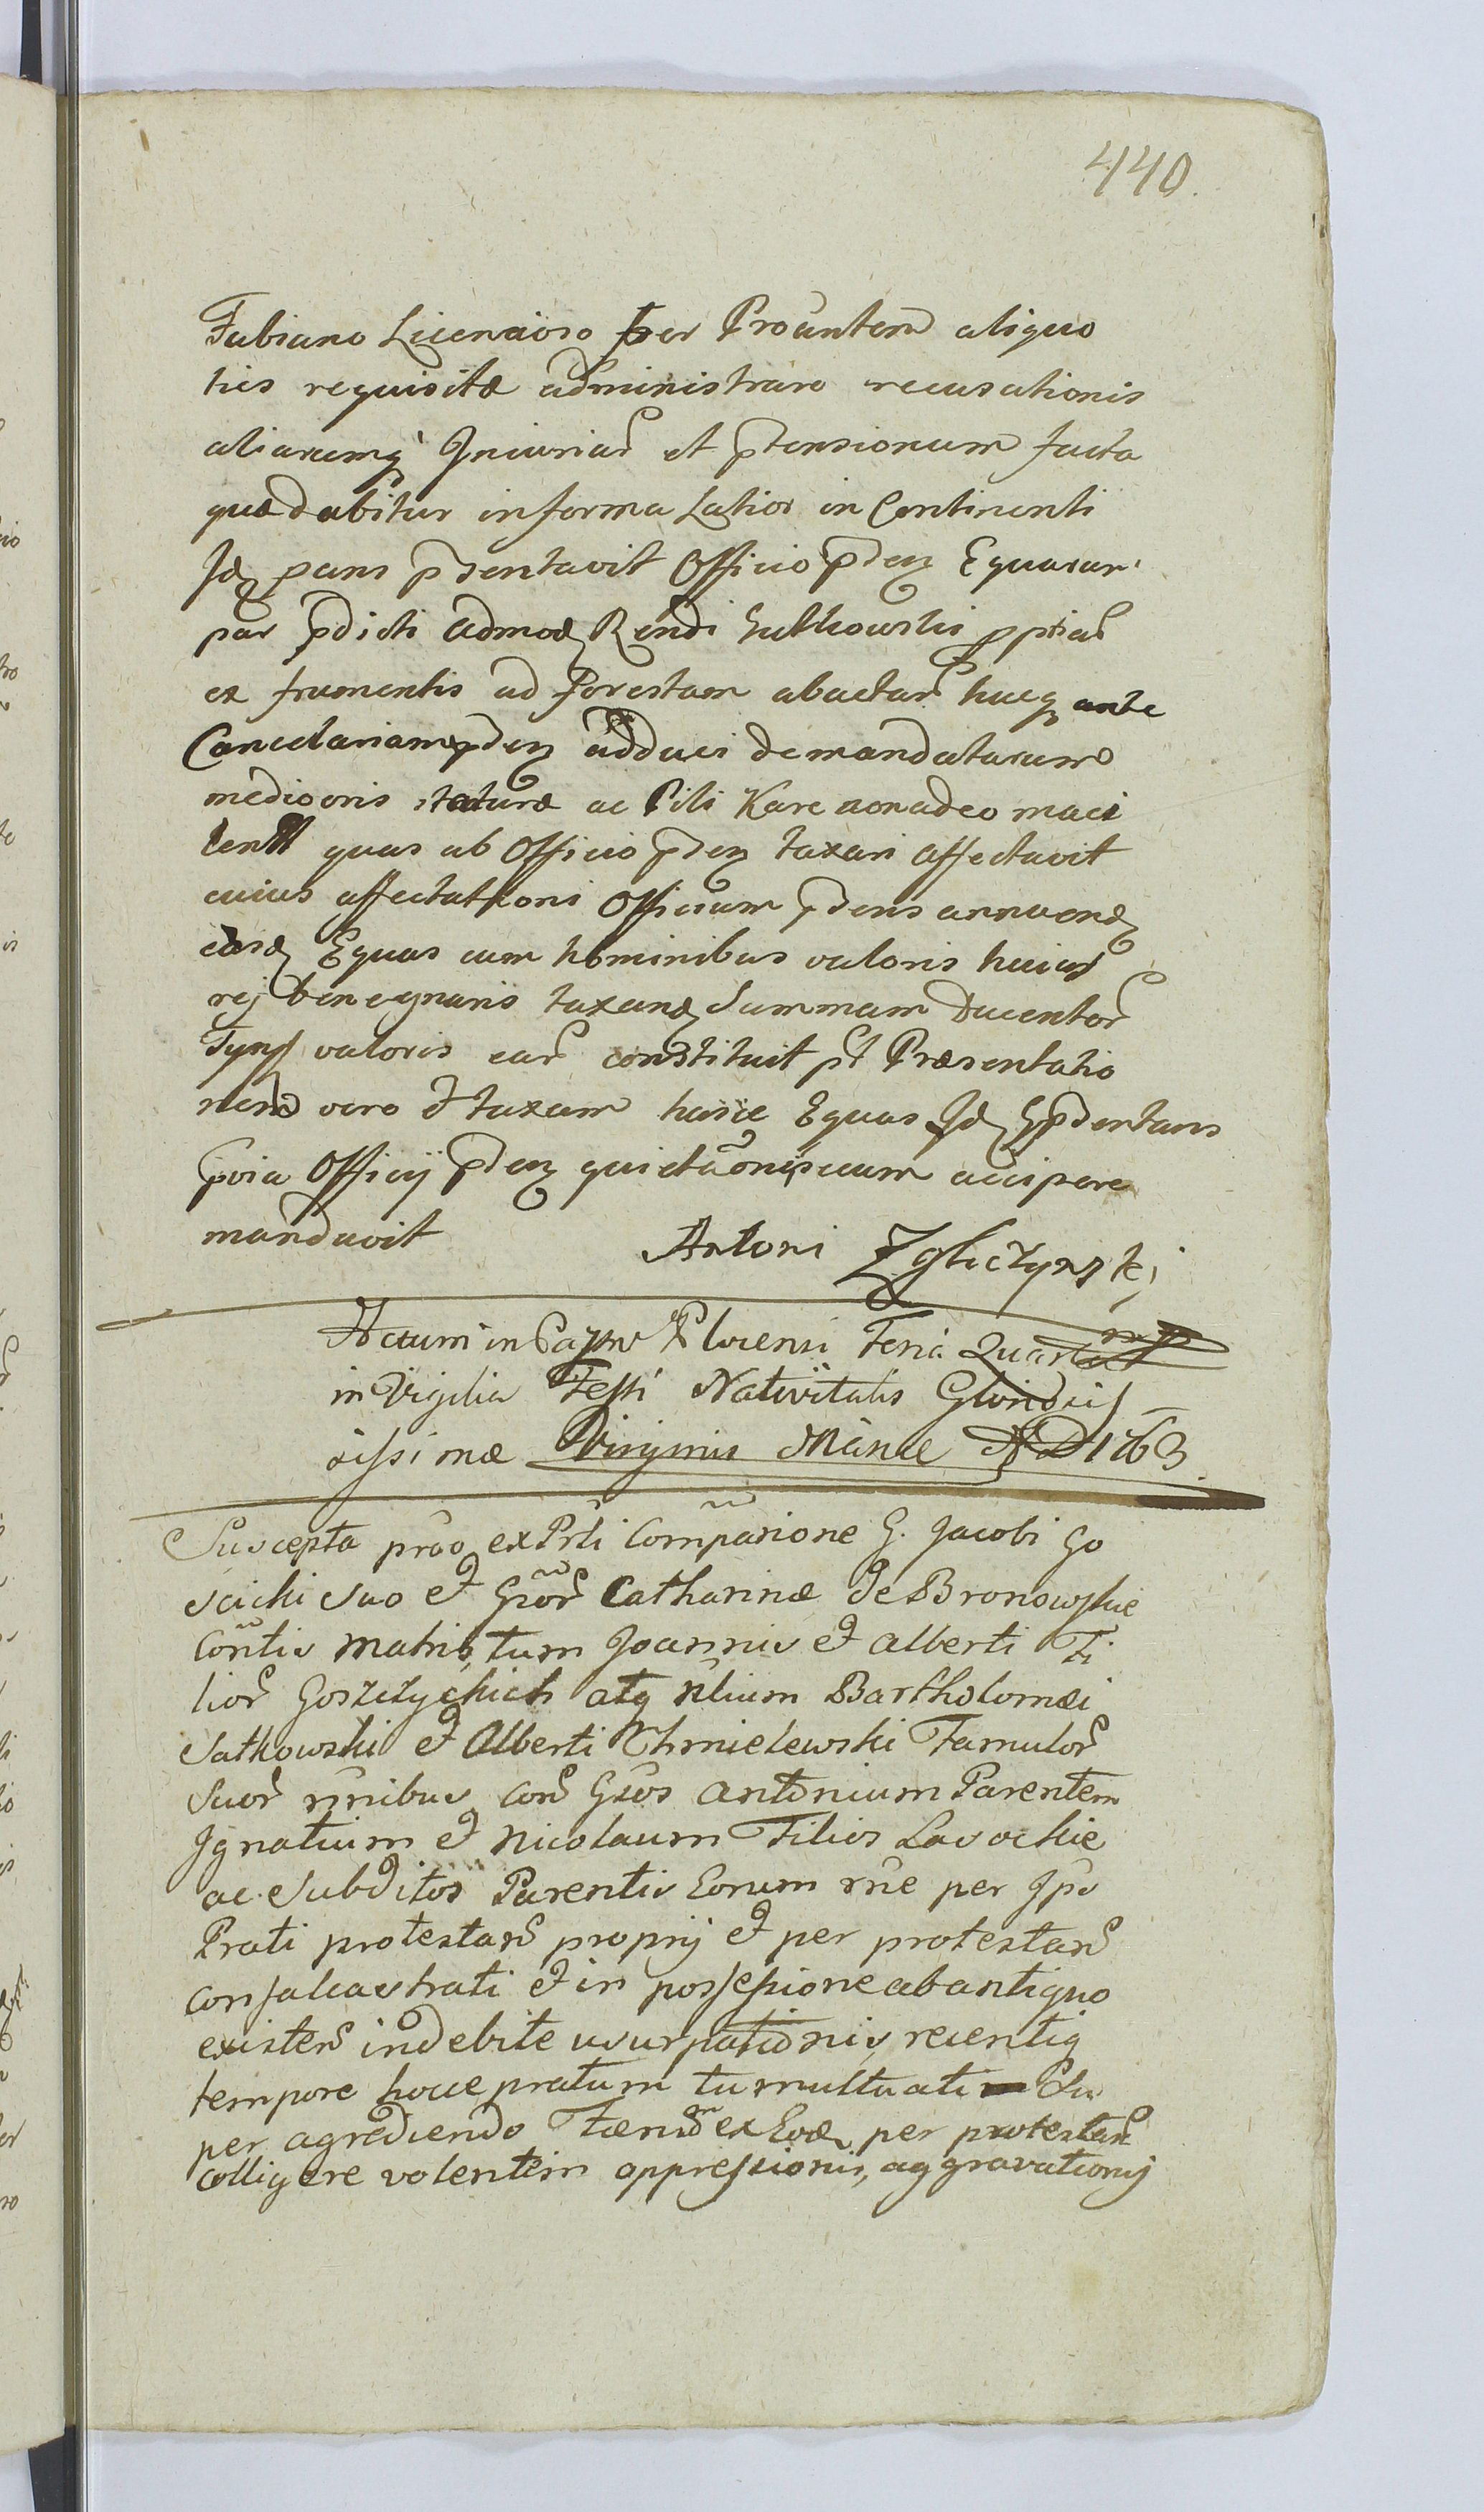 440.
Fabiano Licenaioso per Proũntem aliquo
ties requisitæ administrare recusationis
aliarumq́ Iniuriar̃ et p̃tensionum facta
quæ dabitur in forma Latior in Continenti
Idẽ parens p̃sentavit Officio p̃sen Equarum
par p̃dicti Admod Rendi Gutkowski pptiar̃
ex frumentis ad forestam abactar̃ hucq ante
Cancelariam p̃sen adduci demandatarum
mediocris staturæ ac Pili Kare non adeo maci
lent quas ab Officio p̃sen taxari affectavit
cuius affectationi Officium p̃sens annuend
easd Equas cum hominibus valoris huius
rej bene gnaris taxand Summam Ducentor̃
Tynf valoris ear̃ constituit pt̃ Præsentatio
nem vero et taxam hasce Equas Id p̃sentans
Officij p̃sen accipere
mandavit Antoni Zgliczynski
mp
Actum in Castro Plocensi Feria Quarta
in Vigilia Festi Nativitatis Glorio
sissimæ Virginis Mariæ AD 1763
Suscepta prõo ex Prti Comparione G. Jacobi Go
scicki suo et Gñor̃ Catharinæ de Bronowskie
Cõntis Matris, tum Joannis et Alberti Fi
lior̃ Goszczyckich atq nliũm Bartholomæi
Satkowski et Alberti Chmielewski Famulor̃
Suor̃ nm̃nibus con̄ Gños Antonium Parentem
Ignatium et Nicolaum Filios Lasockie
ac Subditos Parentis Eorum rñe per Ips
Prati protestan̄ proprij et per protestan̄
confalcastrati et in possessione ab antiquo
existen̄ indebite usurpationis, recentiq
tempore hocce pratum tumultuati Su
per agrediendo Fænum ex Eod per protestan̄
colligere volentem oppressionis, aggravationis